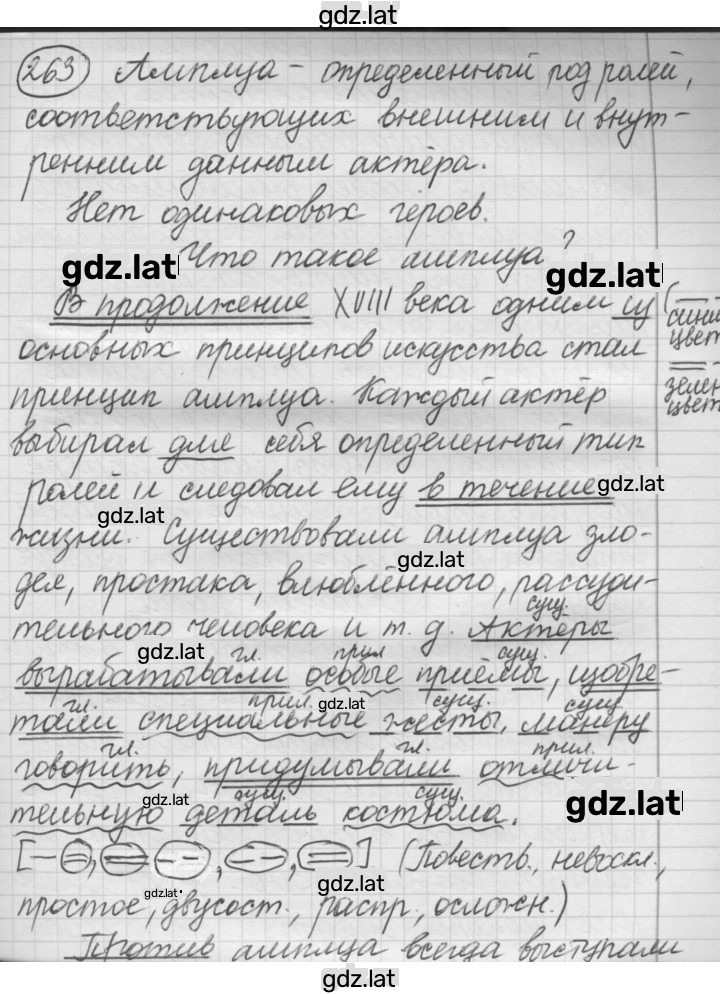 gdz.lat
263 Амплуа - определенный род ролей,
соответствующих внешним и внут-
ренним данным актёра.
Нет одинаковых героев.
gdz.lat Что такое амплуа? gdz.lat
В продолжение XVIII века одним из
синий
цвет
основных принципов искусства стал
принцип амплуа. Каждый актёр
зелен
цвет
выбирал для себя определенный тип
ролей и следовал ему в течение gdz.lat
gdz.lat
жизни. Существовали амплуа зло-
gdz.lat
дея, простака, влюблённого, рассуди-
сущ.
тельного человека и т. д. Актёры
gdz.lat гл. прил сущ.
вырабатывали особые приёмы, изобре-
гл. прил. gdz.lat сущ. сущ
тали специальные жесты, манеру
гл. гл. прил.
говорить, придумывали отличи-
gdz.lat сущ. сущ. gdz.lat
тельную деталь костюма.
[— =, = — -, — -, =] (Повеств., невоскл.,
gdz.lat gdz.lat
простое, двусост., распр., осложн.)
Против амплуа всегда выступали
gdz.lat